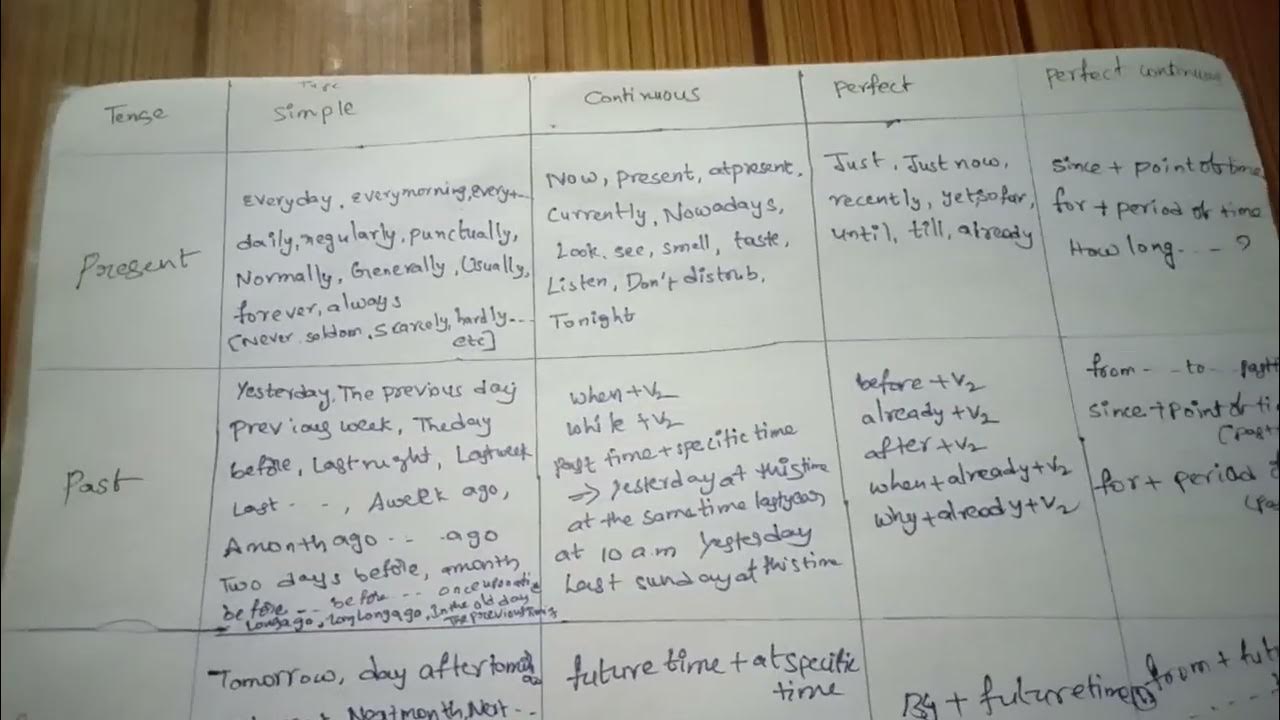 Tense
Type
Simple
Continuous
Perfect
Perfect continuous
Present
Everyday, everymorning, every+--
daily, regularly, punctually,
Normally, Generally, Usually,
forever, always
[Never soldom, Scarcely, hardly...
etc]
Now, present, atpresent,
Currently, Nowadays,
Look, see, smell, taste,
Listen, Don't distrub,
Tonight
Just, Just now,
recently, yet, sofar,
until, till, already
since + point of time
for + period of time
How long - - - - ?
Past
Yesterday, The previous day
previous week, Theday
before, Lastnight, Lastweek
Last - - -, Aweek ago,
Amonth ago - - - ago
Two days before, amonth
before --- before -- onceupon
Longago, Longago, In the old day
The previous
when + V2
while + V2
past time + specific time
⇒ yesterday at this time
at the same time lastyear,
at 10 a.m yesterday
Last sunday at this time
before + V2
already + V2
after + V2
when + already + V2
why + already + V2
from - - - to - - - past
since + point of ti
(past
for + period
(pa
Tomorrow, day after
Nextmonth, Next - -
future time + at specific
time
By + future time
from + fut